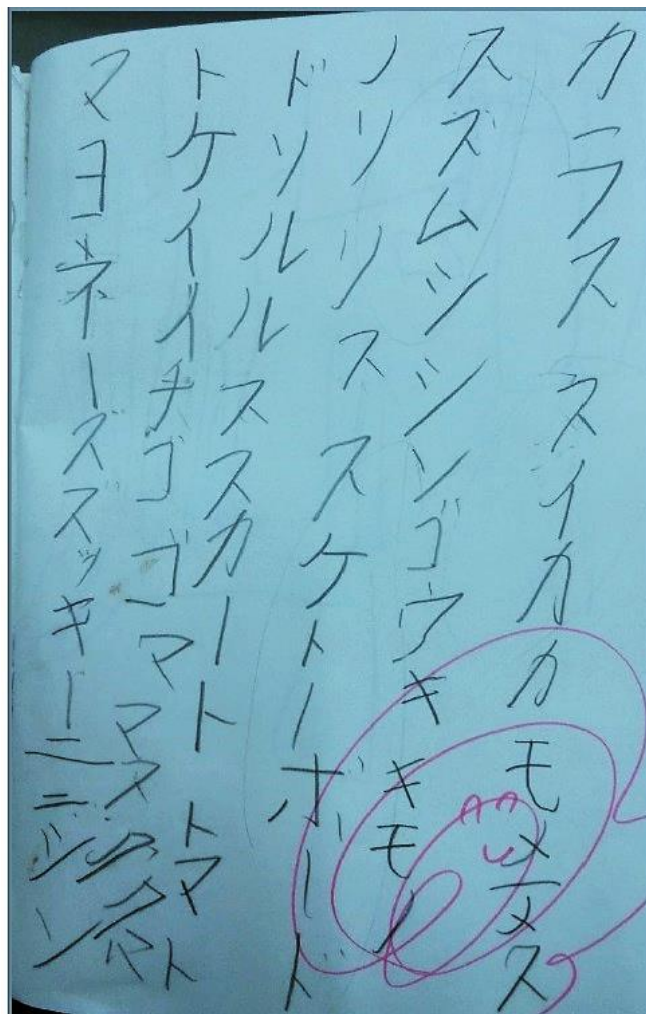 カラス スイカカモメメス
スズムシシンゴウキ キモノ
ノリリス スケートボード
ドリルルススカート トマト
トケイイチゴゴママ
マヨネーズズッキーニニンジン